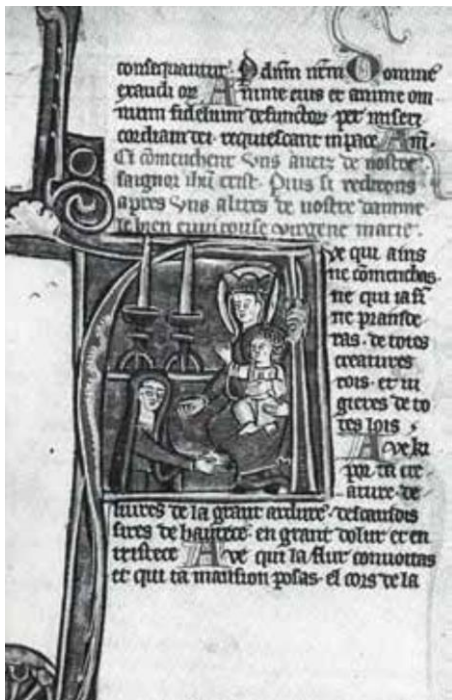 consequantur. P dnm nrm Domine
exaudi or Anime eius et anime om
nium fidelium defunctor per miseri
cordiam dei. requiescant in pace Am̄.
Ci comencent uns auez de nostre
saignor ihu crist. Puis si redirons
apres uns altres de nostre damme
le bien
virgene marie.
ve qui ains
ne comenchas.
ne qui ia fin
ne prendras
ras. de totes
creatures
rois. et iu
gieres de to
tes lois
Ave ki
por ta cre
ature. de
liures de la grant ardure. descausis
sires de hautece. en grant dolur et en
tristece Ave qui la flur conuoitas
et qui ta mansion posas. el cors de la